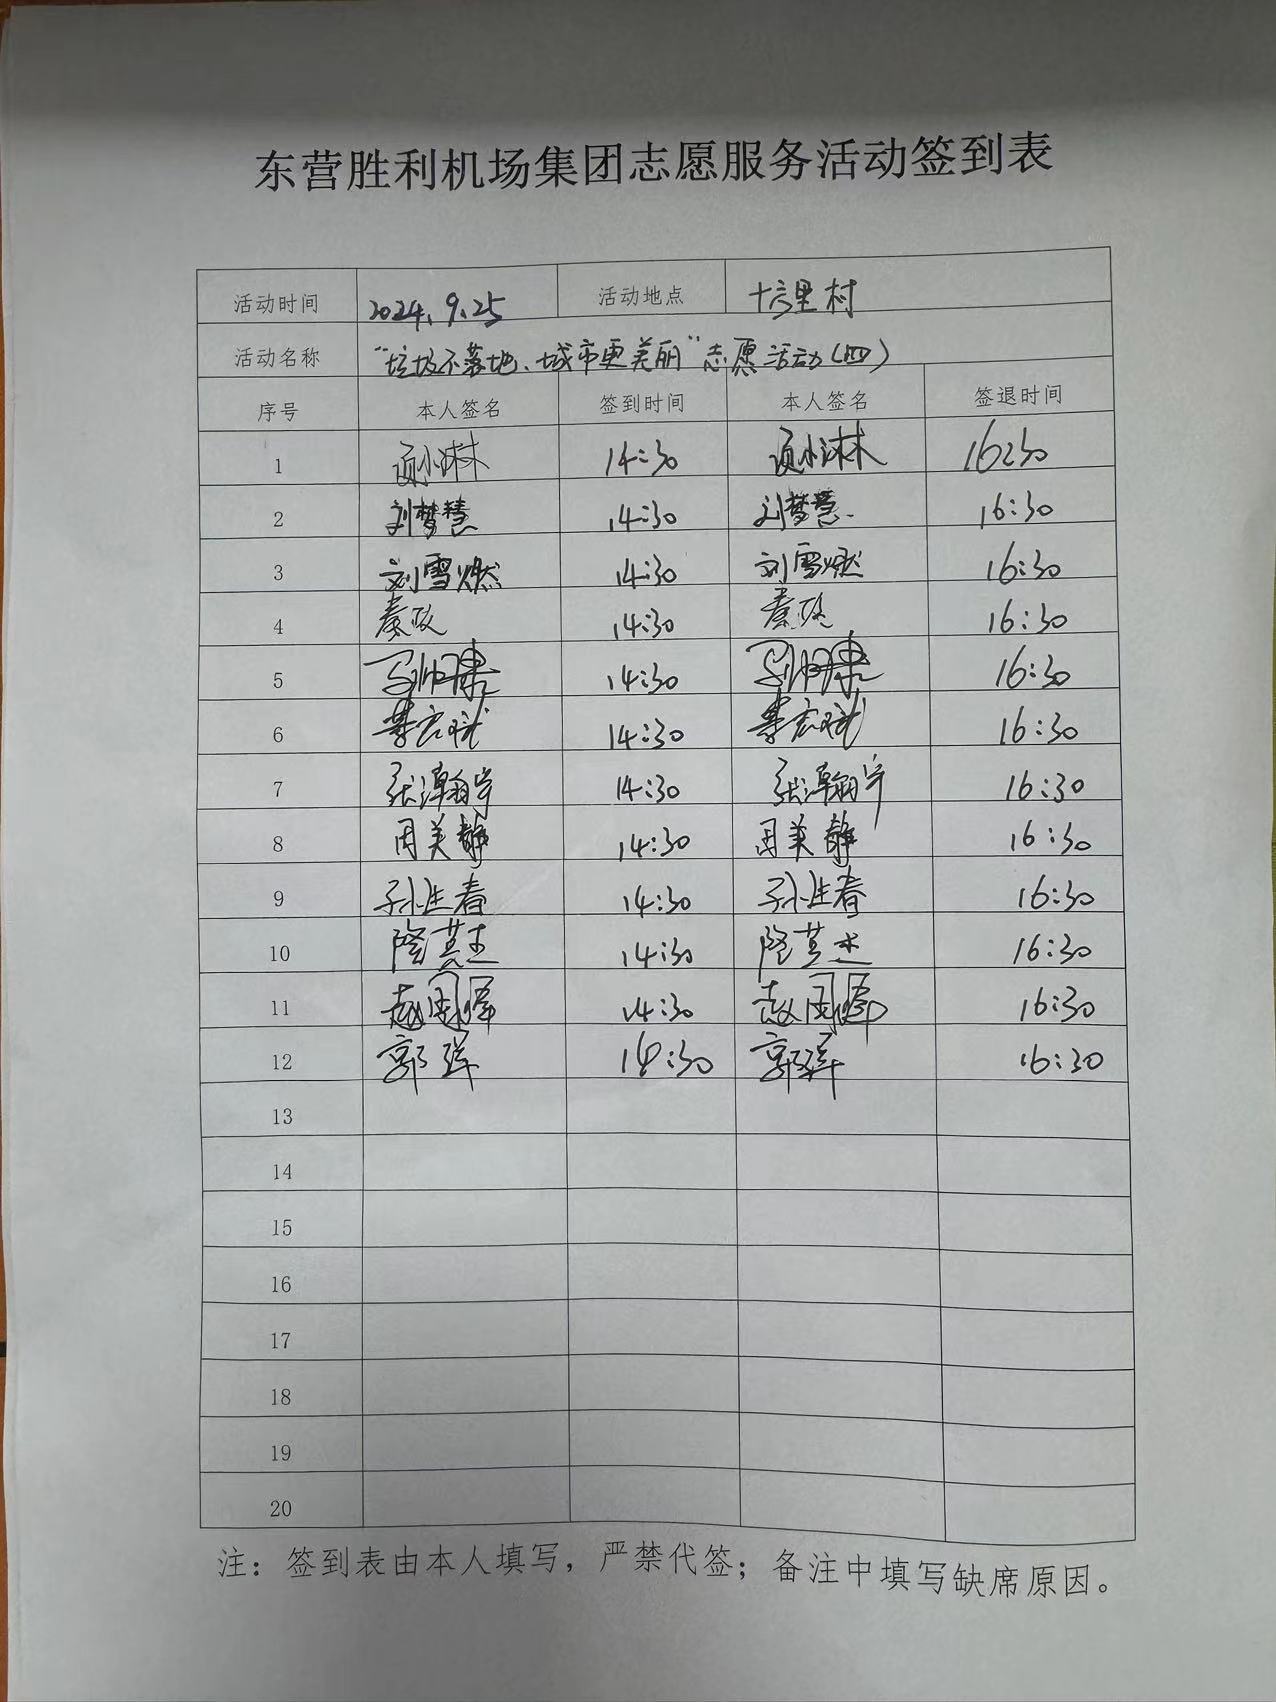 东营胜利机场集团志愿服务活动签到表
活动时间 2024.9.25 活动地点 十六里村
活动名称 “垃圾不落地、城市更美丽”志愿活动(四)
序号 本人签名 签到时间 本人签名 签退时间
1 14:30 16:30
2 刘梦慧 14:30 刘梦慧 16:30
3 刘雪燃 14:30 刘雪燃 16:30
4 秦政 14:30 秦政 16:30
5 14:30 16:30
6 14:30 16:30
7 张潇翰宇 14:30 张潇翰宇 16:30
8 周美静 14:30 周美静 16:30
9 孙胜春 14:30 孙胜春 16:30
10 隆英杰 14:30 隆英杰 16:30
11 赵国辉 14:30 赵国辉 16:30
12 郭强 14:30 郭强 16:30
13
14
15
16
17
18
19
20
注：签到表由本人填写，严禁代签；备注中填写缺席原因。